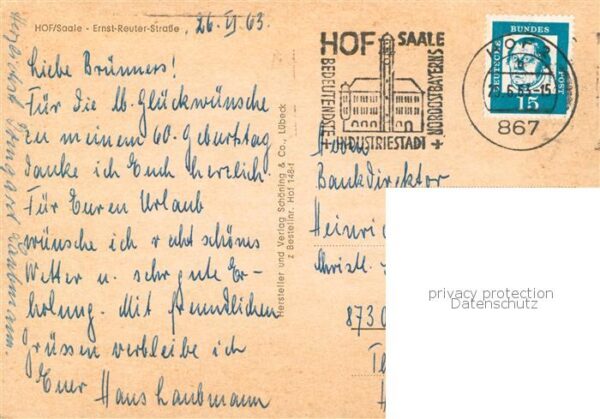 HOF/Saale - Ernst-Reuter-Straße
26. VI 63
Liebe Brünners!
Für die lb. Glückwünsche
zu meinem 60. Geburtstag
danke ich Euch herzlich.
Für Euren Urlaub
wünsche ich recht schönes
Wetter u. sehr gute Er-
holung. Mit freundlichen
Grüssen verbleibe ich
Euer Hans Laubmann
Herzlichst
Laubmann.
Hersteller und Verlag Schöning & Co., Lübeck
z Bestellnr. Hof 148d
HOF SAALE
BEDEUTENDSTE
+ INDUSTRIESTADT +
NORDOSTBAYERNS
867
DEUTSCHE
BUNDES
POST
15
Bankdirektor
Heinri
8730
privacy protection
Datenschutz